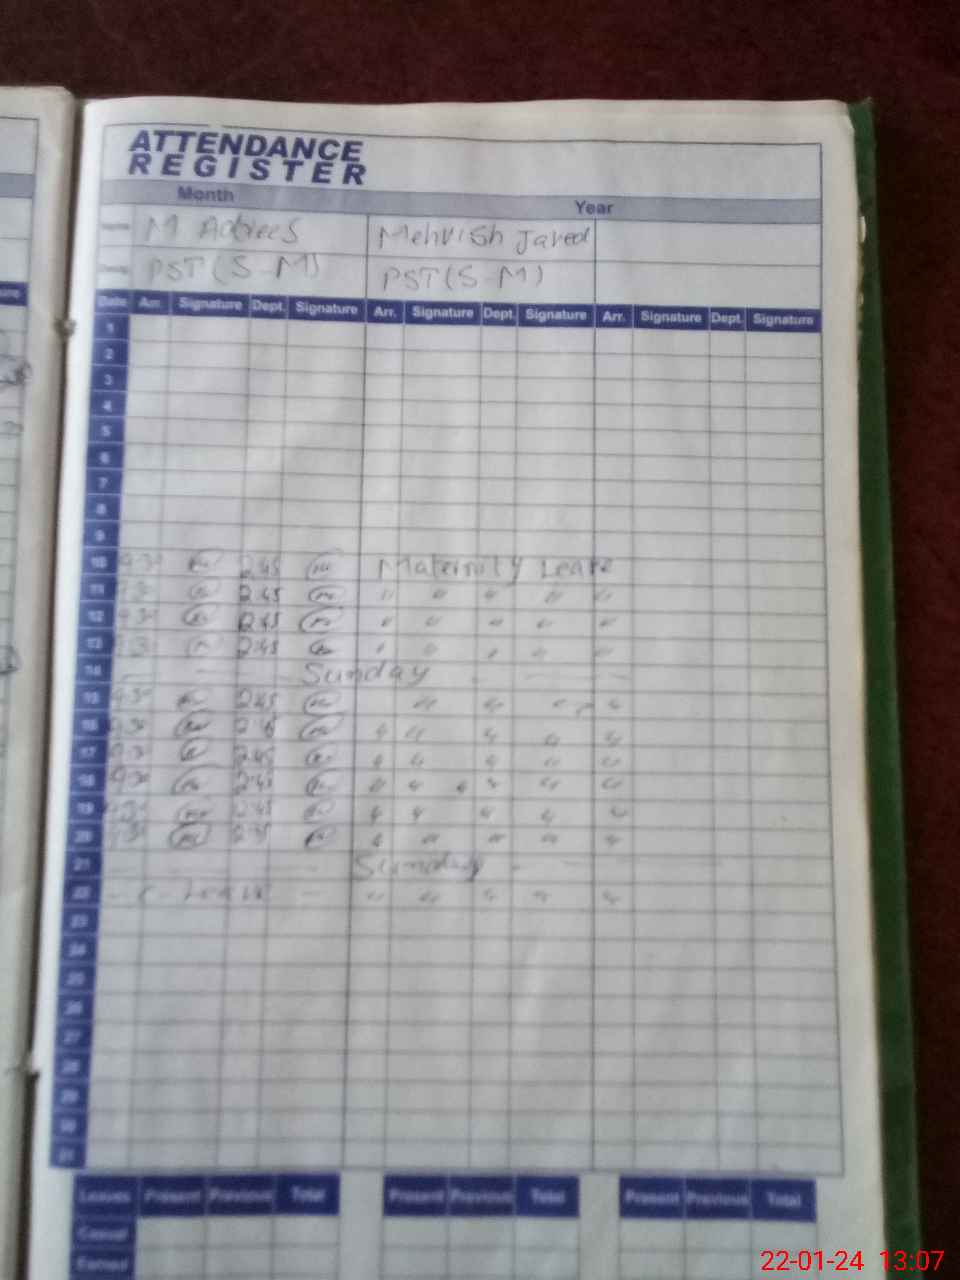 ATTENDANCE
REGISTER
Month Year
Name M Adrees Mehvish Javed
Desig. PST (S-M) PST (S-M)
Date Arr. Signature Dept. Signature Arr. Signature Dept. Signature Arr. Signature Dept. Signature
1
2
3
4
5
6
7
8
9
10 9:30 2:45 Maternity Leave
11 9:30 2:45 " " " " "
12 9:30 2:45 " " " " "
13 9:30 2:45 " " " " "
14 Sunday
15 9:30 2:45 " " " "
16 9:30 2:45 " " " " "
17 9:30 2:45 " " " " "
18 9:30 2:45 " " " " " "
19 9:30 2:45 " " " " "
20 9:30 2:45 " " " " "
21 Sunday
22 C-Leave " " " " "
23
24
25
26
27
28
29
30
31
Leaves Present Previous Total Present Previous Total Present Previous Total
Casual
Earned
22-01-24 13:07